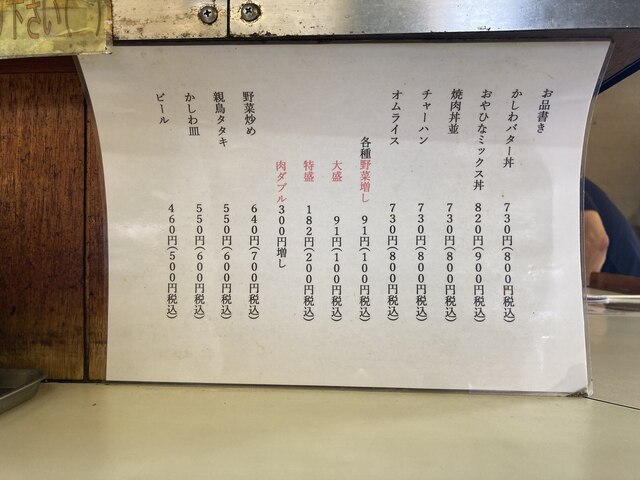 下さい
お品書き
かしわバター丼 730円(800円税込)
おやひなミックス丼 820円(900円税込)
焼肉丼並 730円(800円税込)
チャーハン 730円(800円税込)
オムライス 730円(800円税込)
各種野菜増し 91円(100円税込)
大盛 91円(100円税込)
特盛 182円(200円税込)
肉ダブル300円増し
野菜炒め 640円(700円税込)
親鳥タタキ 550円(600円税込)
かしわ皿 550円(600円税込)
ビール 460円(500円税込)